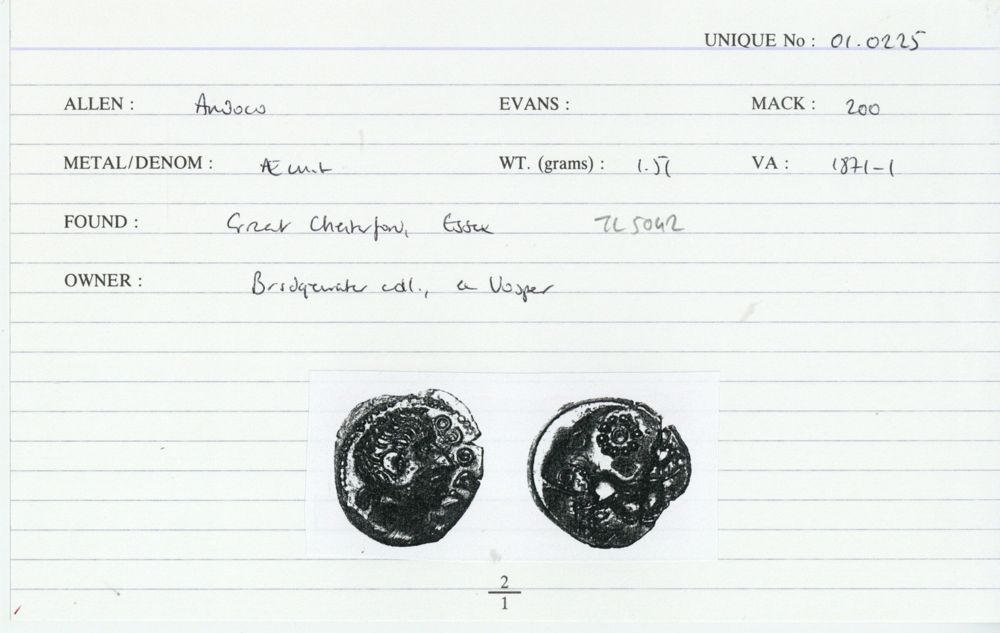 UNIQUE No : 01.0225
ALLEN : Andoco EVANS : MACK : 200
METAL/DENOM : Æ unit WT. (grams) : 1.51 VA : 1871-1
FOUND : Great Chesterford, Essex TL 5042
OWNER : Bridgewater coll., ex Vosper
2
1